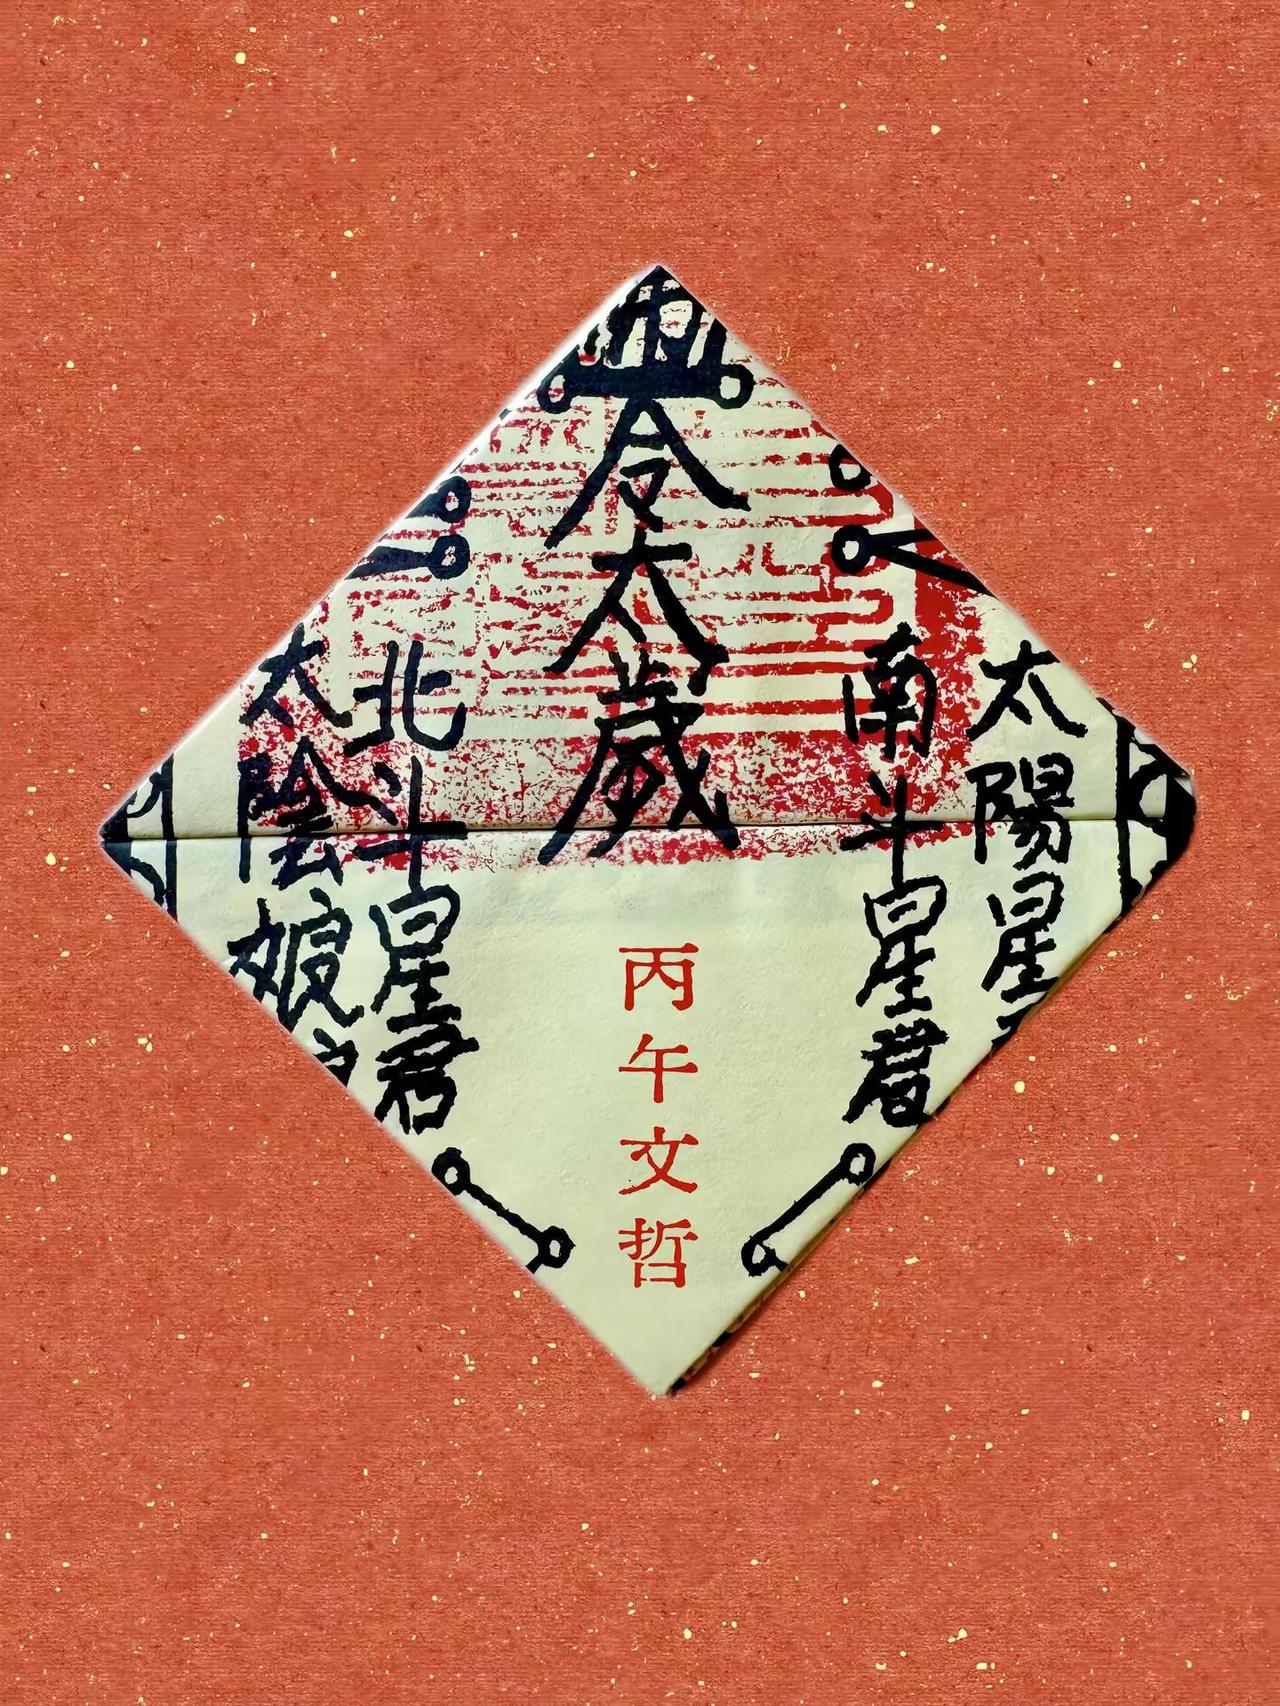 太陽星
南斗星君
令太歲
丙午文哲
北斗星君
太陰娘